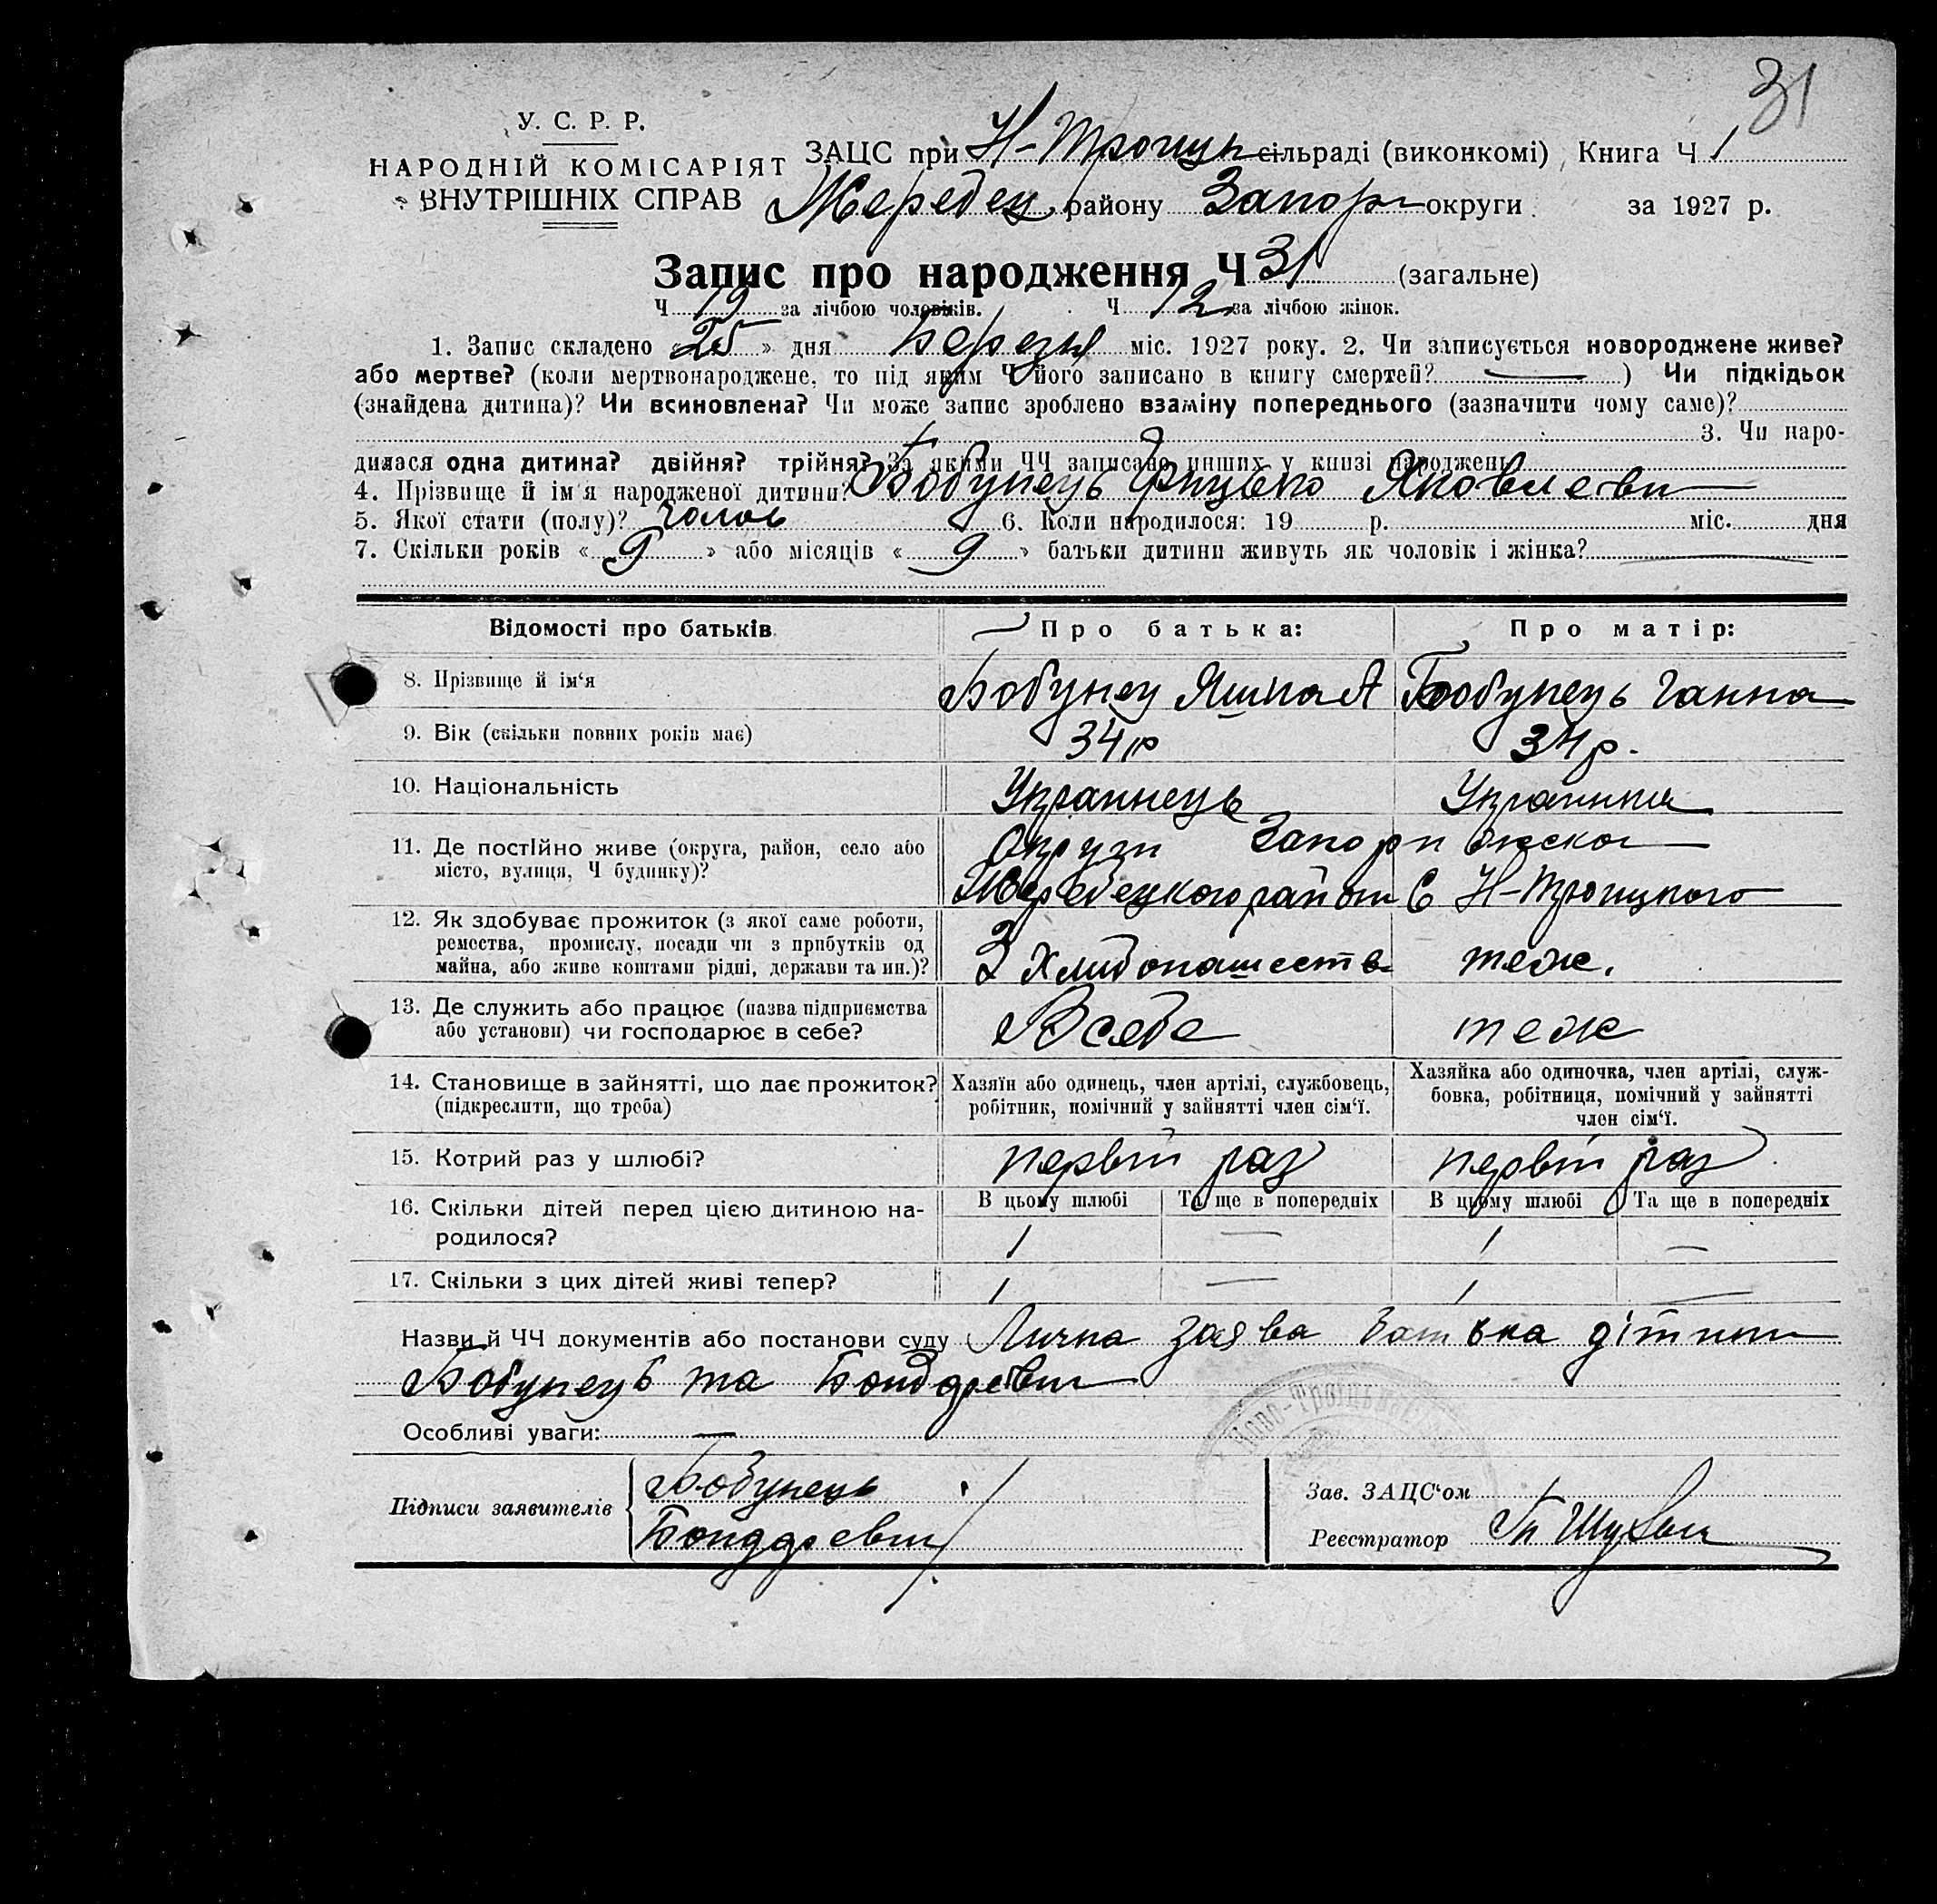 31
У. С. Р. Р.
НАРОДНІЙ КОМІСАРІЯТ
ВНУТРІШНІХ СПРАВ
ЗАЦС при Н-Троицк сільраді (виконкомі) Книга Ч 1
Жеребец району Запор округи за 1927 р.
Запис про народження Ч 31 (загальне)
Ч 19 за лічбою чоловіків. Ч 12 за лічбою жінок.
1. Запис складено «25» дня Березня міс. 1927 року. 2. Чи записується новороджене живе?
або мертве? (коли мертвонароджене, то під яким Ч його записано в книгу смертей? —) Чи підкідьок
(знайдена дитина)? Чи всиновлена? Чи може запис зроблено взаміну попереднього (зазначити чому саме)?
3. Чи наро-
дилася одна дитина? двійня? трійня? За якими ЧЧ записано инших у книзі народжень
4. Прізвище й ім'я народженої дитини? Бобунець Яковлеви
5. Якої стати (полу)? чолов 6. Коли народилося: 19 р. міс. дня
7. Скільки років « 9 » або місяців « 9 » батьки дитини живуть як чоловік і жінка? —
Відомості про батьків Про батька: Про матір:
8. Прізвище й ім'я Бобунец А Бобунець Ганна
9. Вік (скільки повних років має) 34 р 34 р.
10. Національність Украинець Украинка
11. Де постійно живе (округа, район, село або Округи
місто, вулиця, Ч будинку)? Жеребецкого района С Н-Троицкого
12. Як здобуває прожиток (з якої саме роботи,
ремества, промислу, посади чи з прибутків од З теж.
майна, або живе коштами рідні, держави та ин.)?
13. Де служить або працює (назва підприємства
або установи) чи господарює в себе? В себе теж
14. Становище в зайнятті, що дає прожиток? Хазяїн або одинець, член артілі, службовець, Хазяйка або одиночка, член артілі, служ-
(підкреслити, що треба) робітник, помічний у зайнятті член сім'ї. бовка, робітниця, помічний у зайнятті
член сім'ї.
15. Котрий раз у шлюбі? первий раз первий раз
16. Скільки дітей перед цією дитиною на- В цьому шлюбі Та ще в попередніх В цьому шлюбі Та ще в попередніх
родилося? 1 — 1 —
17. Скільки з цих дітей живі тепер? 1 — 1 —
Назви й ЧЧ документів або постанови суду Лична заява батька дітини
Бобунець та
Ново-Троіцька
Особливі уваги: —
Підписи заявителів Бобунець
Зав. ЗАЦС'ом
Реєстратор